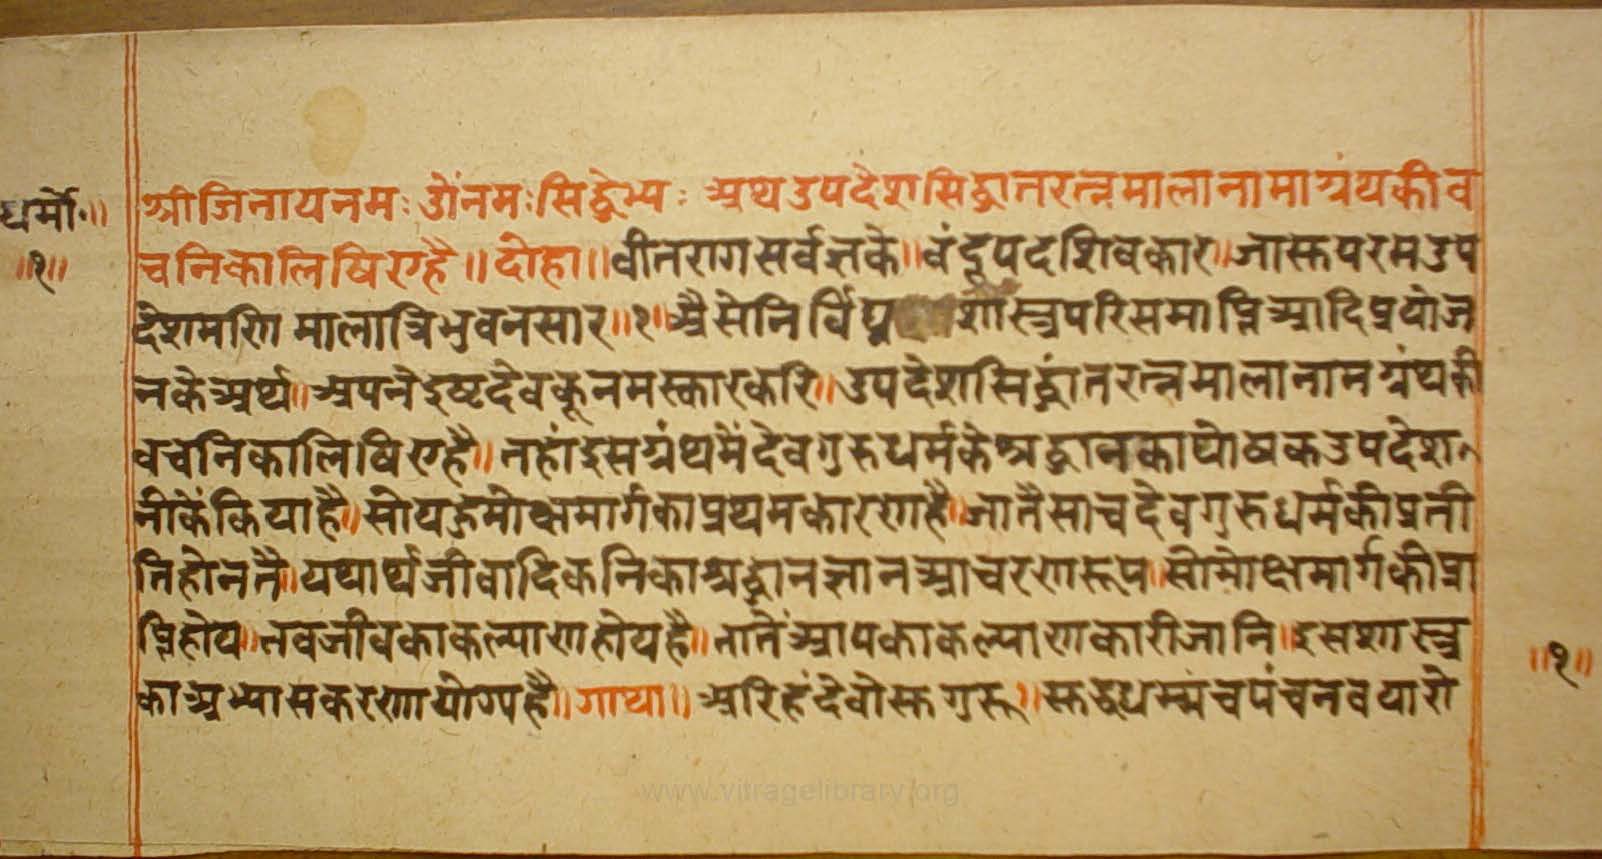 धर्मो॰॥
॥१॥
श्रीजिनायनमः ओंनमःसिद्धेभ्यः अथउपदेशसिद्धातरत्नमालानामाग्रंथकीव
चनिकालिषिएहै॥दोहा॥वीतरागसर्वज्ञके॥वंदूपदशिवकार॥जासुपरमउप
देशमणि मालात्रिभुवनसार॥१॥अैसेनिर्विघ्न शास्त्रपरिसमाप्तिआदिप्रयोज
नकेअर्थ॥अपनेइष्टदेवकूनमस्कारकरि॥उपदेशसिद्धांतरत्नमालानामग्रंथकी
वचनिकालिषिएहै॥तहांइसग्रंथमैंदेवगुरुधर्मकेश्रद्धानकापोषकउपदेश
नीकेंकियाहै॥सोयहमोक्षमार्गकाप्रथमकारणहै॥जातैसाचदेवगुरुधर्मकीप्रती
तिहोनतै॥यथार्थजीवादिकनिकाश्रद्धानज्ञानआचरणरूप॥सोमोक्षमार्गकीप्रा
प्तिहोय॥तवजीवकाकल्याणहोयहै॥तातेंआपकाकल्याणकारीजानि॥इसशास्त्र
काअभ्यासकरणायोग्यहै॥गाथा॥अरिहंदेवोसुगुरू॥सुद्धधम्मंचपंचनवयारो
॥१॥
www.vitragelibrary.org